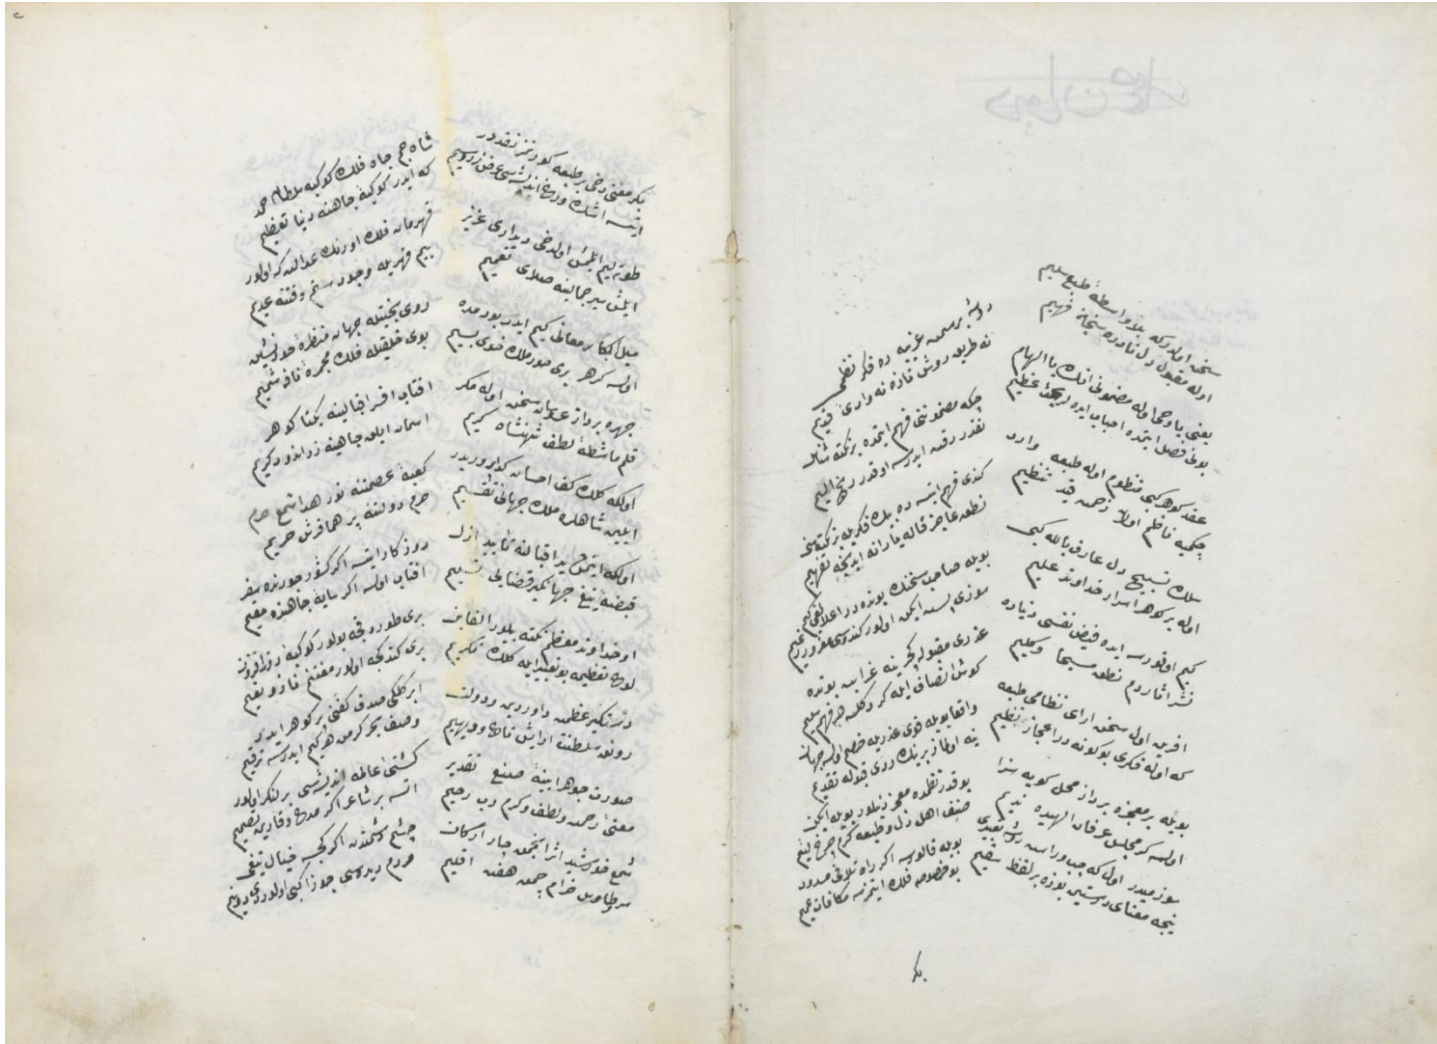 سخن اولدر که بلا واسطهٔ طبع سلیم
اوله مقبول دل نادره سنجان فهیم
یعنی یا وحی اوله مضمونی انک یا الهام
بونی فصل ایتمده احباب ایده بحث عظیم
عقد کوهر کبی منظوم اوله طبعه وارد
چکمیه ناظم اولان زحمت قید تنظیم
سلک تسبیح دل عارف بالله کبی
اوله بر کوهر اسرار خداوند علیم
کیم اوقورسه ایده فیض نفسی دنیاده
نشر اثار دم نطق مسیحا و کلیم
افرین اول سخن ارای نظامی طبعه
که اوله فکری بو کونه در اعجاز نظیم
بویله بر معجزه پرداز محل کویه سزا
اولسه کر مجلس عرفان الهیده ندیم
سوز میدر اول که چپ و راست
نیجه معنای درستین بوزه بر لفظ سقیم
دوشه بر سمت غریبه ده فکر نظمی
نه طریق روش تازه نه وادی قدیم
چکه مضموننی فهم ایتمده بر نکته شناس
نقدر دقت ایدرسه اوقدر رنج الیم
کندی فهم ایتسه ده بیک فکریله بر نکته سنی
نطقی عاجز قاله یارانه ایدنجه تفهیم
بویله صاحب سخنک یونده در اعلا لقبی کیم
سوزی ابسم ایکن اولور کندوسی مغرور زعیم
عذری مقبوله کچر ینه غرابت بونده
کوش انصاف ایله کر دکلسه هر فهم سلیم
واقعا بویله قوی عذریله خصم اولسه جهان
ینه اولماز برینک دردی قبوله تقدیم
بو قدر نظمده معجز بیلور بویله ایکن
صنف اهل دل و طبعه کرم چرخ لئیم
بویله قالورسه اکر راه تلافی مسدود
بو خصوصه فلک ایتمزسه مکافات عمیم
بکر
بکر معنی دخی بر طبعه کورنمز نقدر
ایتسه اشک و رخ اندیشه یی عرض زر و سیم
طوته لیم ایلمش اولدخی دیداری عزیز
ایلمش سیر جمالینه صلای تعمیم
میل ابکار معانی کیم ایدر بو دمده
اولسه کر هر بری حور ملک خوی بسیم
چهره پرداز عروسان سخن اوله مکر
قلم ماشطهٔ لطف شهنشاه کریم
اولکه کلک کف احسان کداپروریدر
ایلین شاهلره ملک جهانی تقسیم
اولکه ایتمش ید اقبالنه تأیید ازل
قبضهٔ تیغ جهانکیر قضایی تسلیم
او خداوند معظم که یلور القابن
لوح تعظیمه بو تعبیر ایله کلک تکریم
داور تکیر عظمت داور دین و دولت
رونق سلطنت ارایش تاج و دیهیم
صورت جوهر آیینهٔ صنع تقدیر
معنئ رحمت و لطف و کرم رب رحیم
شمع خورشید اثر انجمن چار ارکان
سرو طاوس خرام چمن هفت اقلیم
شاه جم جاه فلک کوکبه سلطان احمد
که ایدر کوکبهٔ جاهنه دنیا تعظیم
قهرمان فلک اورنک عدالت که اولور
بیم قهریله وجود ستم و فتنه عدیم
روی بختیله جهان منظرهٔ حور نشین
بوی خلقیله فلک مجمرهٔ نافه شمیم
افتاب افسر اقبالینه یکتا کوهر
اسمان ایلق جاهینه زراندود کریم
کعبهٔ عصمتنه نور هدا شمع حرم
حرم دولتنه پر هما فرش حریم
روزکار ایتسه اکر کشور جودنده سفر
افتاب اولسه اکر سایهٔ جاهنده مقیم
بری طورردقجه بولور کوکبهٔ روز افزون
بری کتدکجه اولور مغتنم ناز و نعیم
ابر کلکی صدف کفنی پر کوهر ایدر
وصف بحر کرمن هر کیم ایدرسه ترقیم
کشتئ عالمه اندیشه سی بر لنکر اولور
ایتسه بر شاعر اکر مدح وقارین تصمیم
چشم دشمنده اکر کچسه خیال تیغی
مردم دیده سی جوزا کبی اولور دو نیم